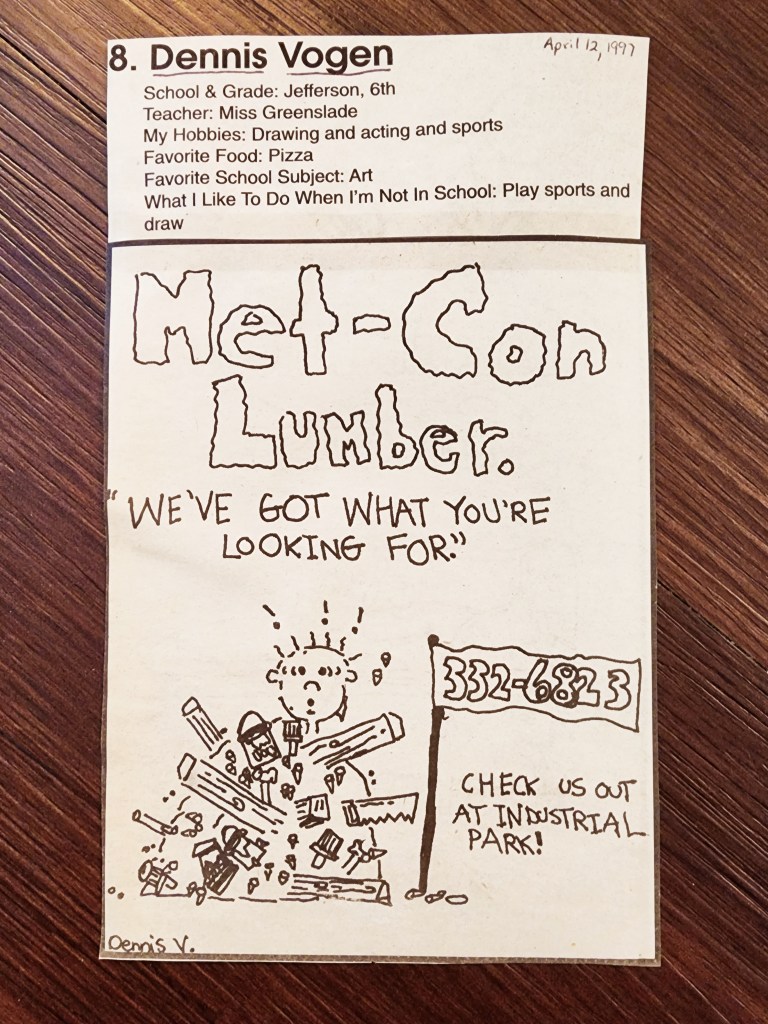 8. Dennis Vogen
April 12, 1997
School & Grade: Jefferson, 6th
Teacher: Miss Greenslade
My Hobbies: Drawing and acting and sports
Favorite Food: Pizza
Favorite School Subject: Art
What I Like To Do When I'm Not In School: Play sports and
draw
Met-Con
Lumber.
"WE'VE GOT WHAT YOU'RE
LOOKING FOR."
! ! !
332-6823
CHECK US OUT
AT INDUSTRIAL
PARK!
Dennis V.